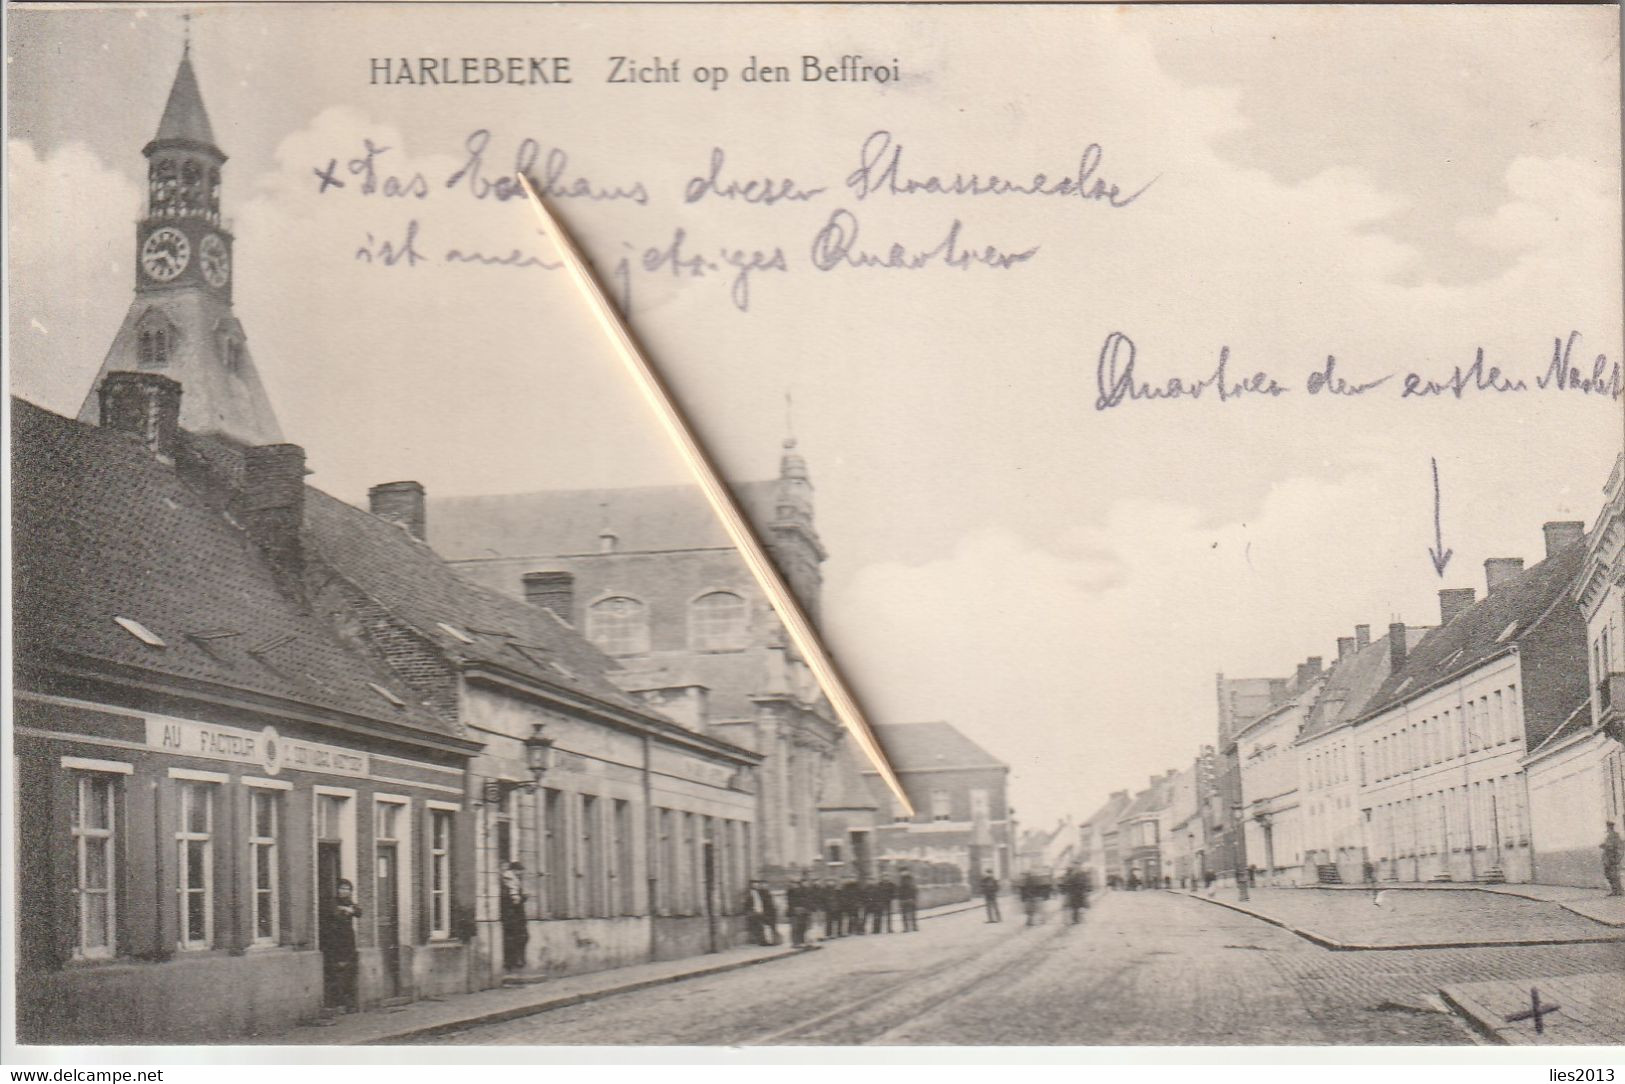 HARLEBEKE Zicht op den Beffroi
x Das Eckhaus dieser Strassenecke
ist mein jetziges Quartier
Quartier der ersten Nacht
AU FACTEUR
x
www.delcampe.net
lies2013